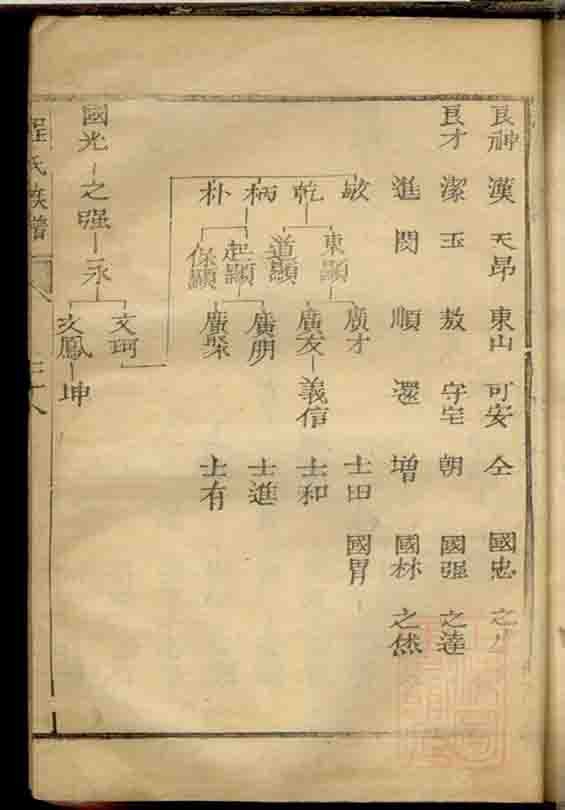 良神 漢 天昂 東山 可安 仝 國忠 之
良才 潔 玉 敖 守宅 朝 國强 之達
進 閔 順 還 增 國林 之然
敏 東顯 廣才 士田 國胃
乾 道顯 廣友 義信 士和
柄 起顯 廣明 士進
朴 保顯 廣聚 士有
國光 之强 永 文珂
文鳳 坤
程氏族譜